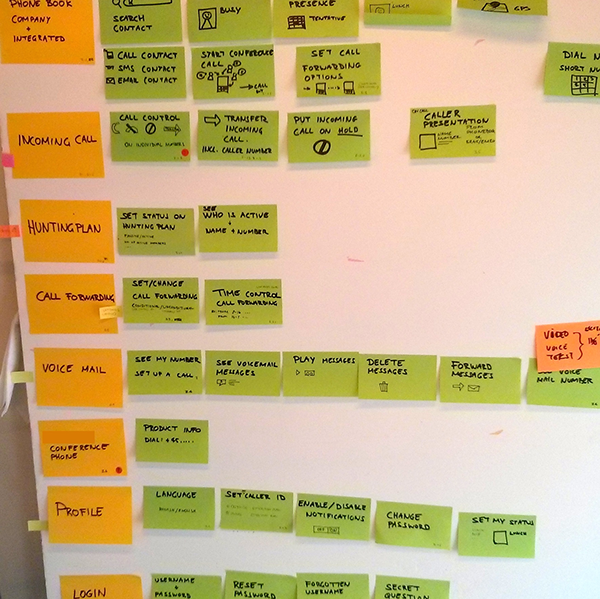 PHONE BOOK
COMPANY
+
INTEGRATED
SEARCH
CONTACT
BUSY
PRESENCE
TENTATIVE
LUNCH
GPS
CALL CONTACT
SMS CONTACT
EMAIL CONTACT
START CONFERENCE
CALL
→CALL
SET CALL
FORWARDING
OPTIONS
DIAL
SHORT
INCOMING CALL
CALL CONTROL
ON INDIVIDUAL NUMBERS
TRANSFER
INCOMING
CALL.
INCL. CALLER NUMBER
PUT INCOMING
CALL ON HOLD
CALLER
PRESENTATION
NAME
NUMBER
HUNTINGPLAN
SET STATUS ON
HUNTING PLAN
SEE
WHO IS ACTIVE
+
NAME + NUMBER
CALL FORWARDING
SET/CHANGE
CALL FORWARDING
TIME CONTROL
CALL FORWARDING
VIDEO
VOICE
VOICE MAIL
SEE MY NUMBER
SET UP A CALL
SEE VOICEMAIL
MESSAGES
PLAY MESSAGES
DELETE
MESSAGES
FORWARD
MESSAGES
VOICE
MAIL NUMBER
CONFERENCE
PHONE
PRODUCT INFO
DIAL: +45.....
PROFILE
LANGUAGE
SET CALLER ID
ENABLE/DISABLE
NOTIFICATIONS
OFF ON
CHANGE
PASSWORD
SET MY STATUS
LUNCH
LOGIN
USERNAME
+
PASSWORD
RESET
PASSWORD
FORGOTTEN
USERNAME
SECRET
QUESTION